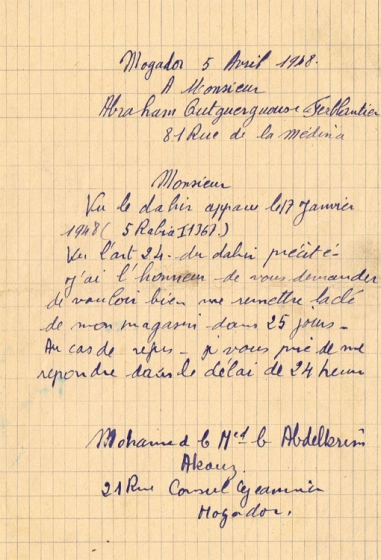 Mogador 5 Avril 1948.
A Monsieur
Abraham Ferblantier
81 Rue de la médina
Monsieur
Vu le dahir apparu le 17 Janvier
1948 ( 5 Rabia I 1367.)
Vu l'art 24 du dahir précité -
j'ai l'honneur de vous demander
de vouloir bien me remettre la clé
de mon magasin dans 25 jours -
Au cas de refus - je vous prie de me
repondre dans le délai de 24 heures
Mohamed b Med b Abdelkrim
Akouz.
21 Rue Consul
Mogador.